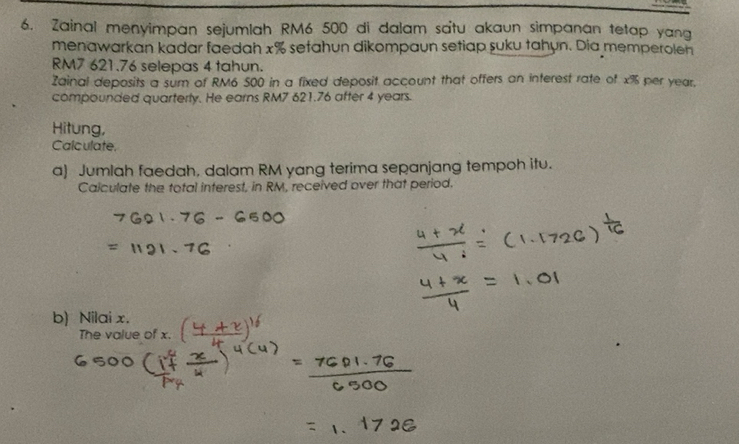 6. Zainal menyimpan sejumlah RM6 500 di dalam satu akaun simpanan tetap yang
menawarkan kadar faedah x% setahun dikompaun setiap suku tahun. Dia memperoleh
RM7 621.76 selepas 4 tahun.
Zainal deposits a sum of RM6 500 in a fixed deposit account that offers an interest rate of x% per year,
compounded quarterly. He earns RM7 621.76 after 4 years.
Hitung,
Calculate,
a) Jumlah faedah, dalam RM yang terima sepanjang tempoh itu.
Calculate the total interest, in RM, received over that period.
7621.76 - 6500
= 1121.76
(4 + x)/4 = (1.1726)^(1/16)
(4 + x)/4 = 1.01
b) Nilai x.
The value of x.
((4 + x)/4)^16
6500 (1 + x/4)^4(4) = 7621.76/6500
= 1.1726